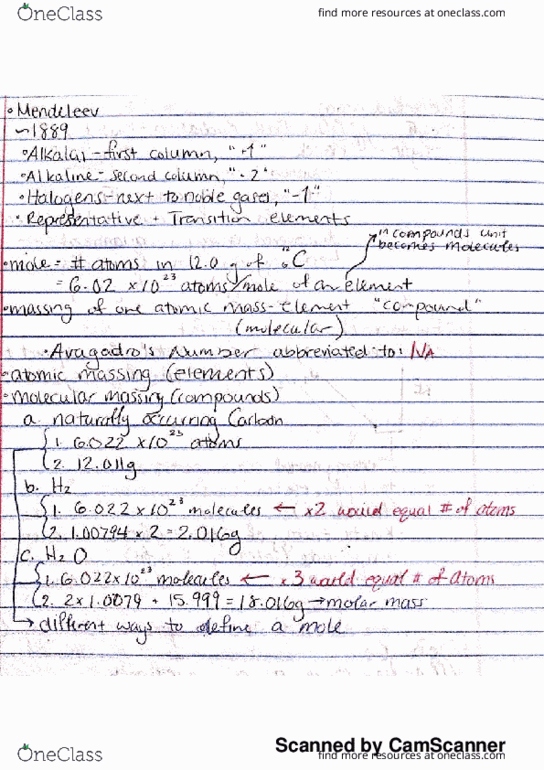 OneClass
find more resources at oneclass.com
• Mendeleev
~1889
• Alkalai - first column, "+1"
• Alkaline - second column, "+2"
• Halogens - next to noble gases, "-1"
• Representative + Transition elements
in compounds unit
becomes molecules
• mole = # atoms in 12.0 g of C
= 6.02 x 10^23 atoms/mole of an element
• massing of one atomic mass - element "compound"
(molecular)
• Avagadro's Number abbreviated to: NA
• atomic massing (elements)
• molecular massing (compounds)
a. naturally occurring Carbon
1. 6.022 x 10^23 atoms
2. 12.011g
b. H2
1. 6.022 x 10^23 molecules ← x2 would equal # of atoms
2. 1.00794 x 2 = 2.016g
c. H2O
1. 6.022 x 10^23 molecules ← x3 would equal # of atoms
2. 2 x 1.0079 + 15.999 = 18.016g → molar mass
→ different ways to define a mole
Scanned by CamScanner
OneClass
find more resources at oneclass.com